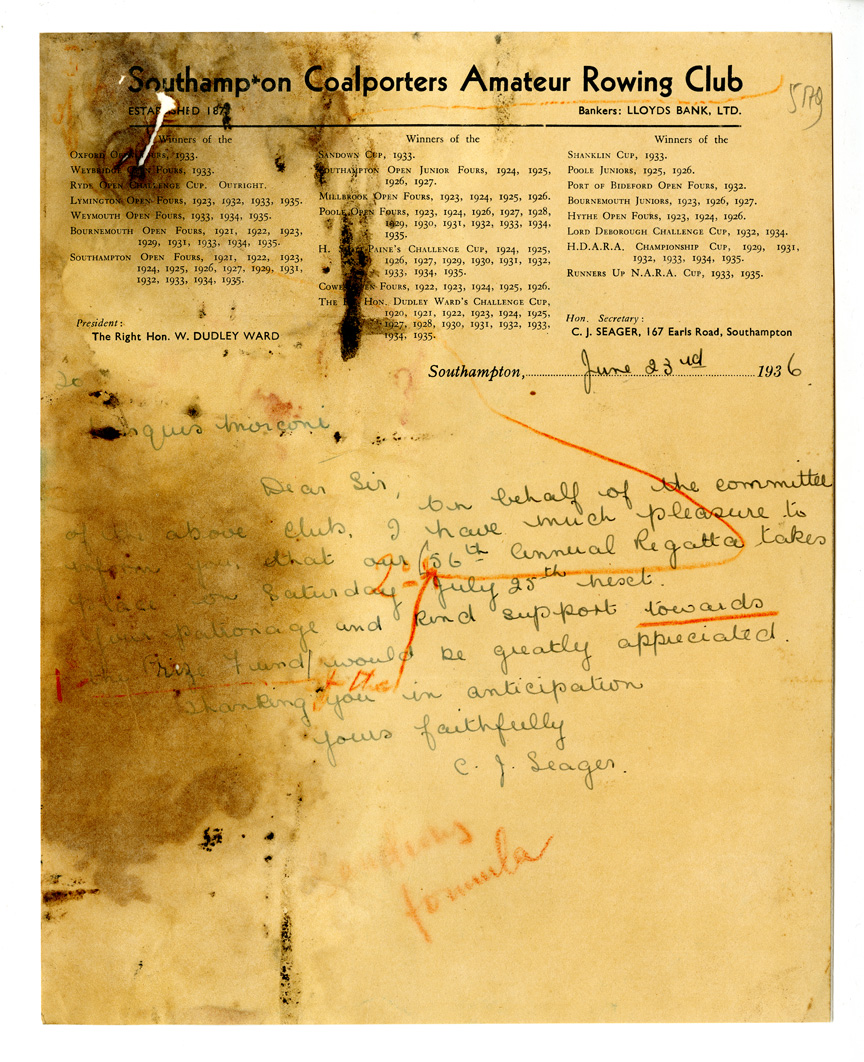 Southampton Coalporters Amateur Rowing Club
5179
ESTABLISHED 187
Bankers: LLOYDS BANK, LTD.
Winners of the
Oxford Open Fours, 1933.
Weybridge Open Fours, 1933.
Ryde Open Challenge Cup. Outright.
Lymington Open Fours, 1923, 1932, 1933, 1935.
Weymouth Open Fours, 1933, 1934, 1935.
Bournemouth Open Fours, 1921, 1922, 1923,
1929, 1931, 1933, 1934, 1935.
Southampton Open Fours, 1921, 1922, 1923,
1924, 1925, 1926, 1927, 1929, 1931,
1932, 1933, 1934, 1935.
President:
The Right Hon. W. DUDLEY WARD
Winners of the
Sandown Cup, 1933.
Southampton Open Junior Fours, 1924, 1925,
1926, 1927.
Millbrook Open Fours, 1923, 1924, 1925, 1926.
Poole Open Fours, 1923, 1924, 1926, 1927, 1928,
1929, 1930, 1931, 1932, 1933, 1934,
1935.
H. Paine's Challenge Cup, 1924, 1925,
1926, 1927, 1929, 1930, 1931, 1932,
1933, 1934, 1935.
Cowes Open Fours, 1922, 1923, 1924, 1925, 1926.
The Hon. Dudley Ward's Challenge Cup,
1920, 1921, 1922, 1923, 1924, 1925,
1927, 1928, 1930, 1931, 1932, 1933,
1934, 1935.
Winners of the
Shanklin Cup, 1933.
Poole Juniors, 1925, 1926.
Port of Bideford Open Fours, 1932.
Bournemouth Juniors, 1923, 1926, 1927.
Hythe Open Fours, 1923, 1924, 1926.
Lord Deborough Challenge Cup, 1932, 1934.
H.D.A.R.A. Championship Cup, 1929, 1931,
1932, 1933, 1934, 1935.
Runners Up N.A.R.A. Cup, 1933, 1935.
Hon. Secretary:
C. J. SEAGER, 167 Earls Road, Southampton
Southampton, June 23rd 1936.
To
Marquis Marconi
Dear Sir,
On behalf of the committee
of the above Club, I have much pleasure to
inform you that our 56th Annual Regatta takes
place on Saturday July 25th next.
Your patronage and kind support towards
the Prize Fund would be greatly appreciated.
Thanking you in anticipation
yours faithfully
C. J. Seager.
formula